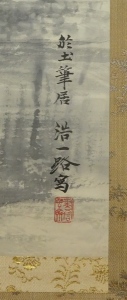 於土筆居 浩一路寫